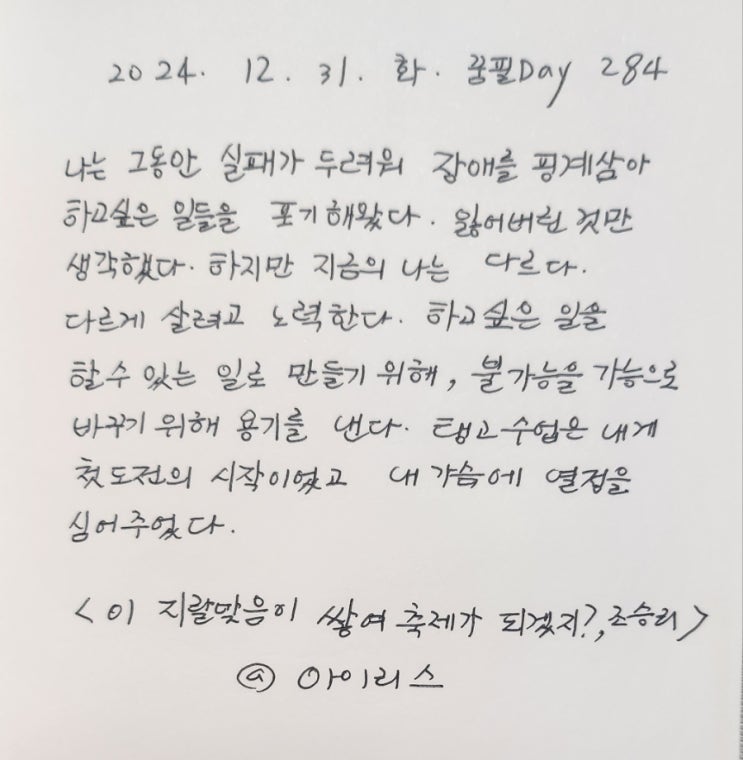 2024. 12. 31. 화. 꿈필Day 284
나는 그동안 실패가 두려워 장애를 핑계삼아
하고싶은 일들을 포기해왔다. 잃어버린 것만
생각했다. 하지만 지금의 나는 다르다.
다르게 살려고 노력한다. 하고싶은 일을
할 수 있는 일로 만들기 위해, 불가능을 가능으로
바꾸기 위해 용기를 낸다. 탱고수업은 내게
첫 도전의 시작이었고 내 가슴에 열정을
심어주었다.
<이 지랄맞음이 쌓여 축제가 되겠지?, 조승리>
@ 아이리스